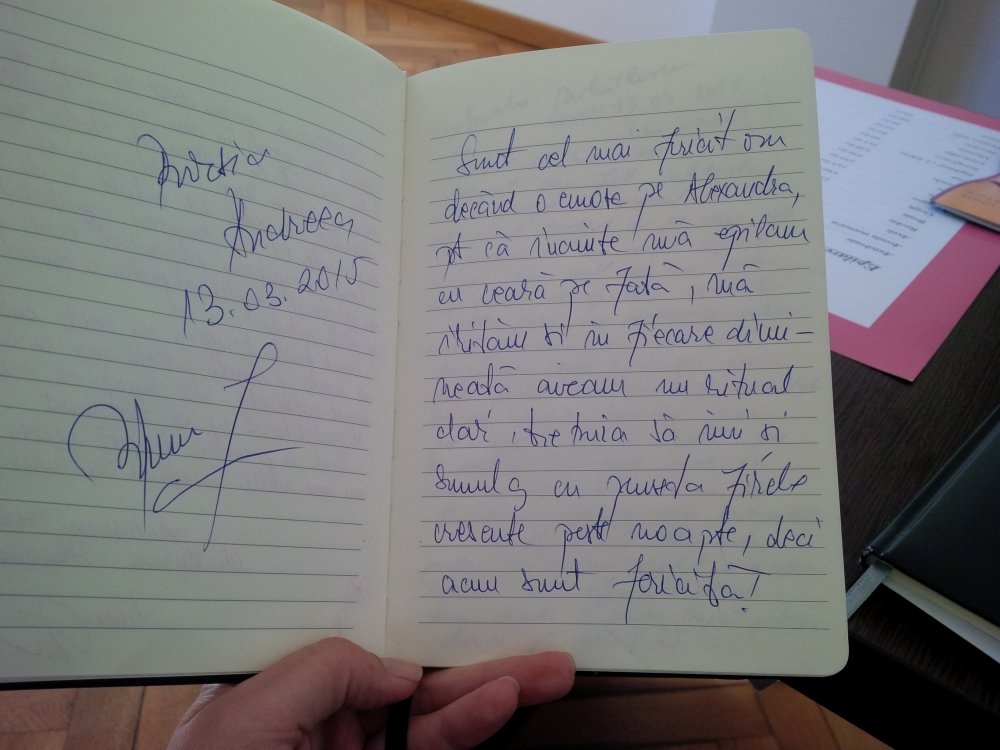 Andreea
13.03.2015
Sunt cel mai fericit om
decând o cunosc pe Alexandra,
pt că înainte mă epilam
cu ceară pe față, mă
iritam și în fiecare dimi-
neață aveam un ritual
clar, trebuia să îmi și
smulg cu penseta firele
crescute peste noapte, deci
acum sunt fericită!
Epilare